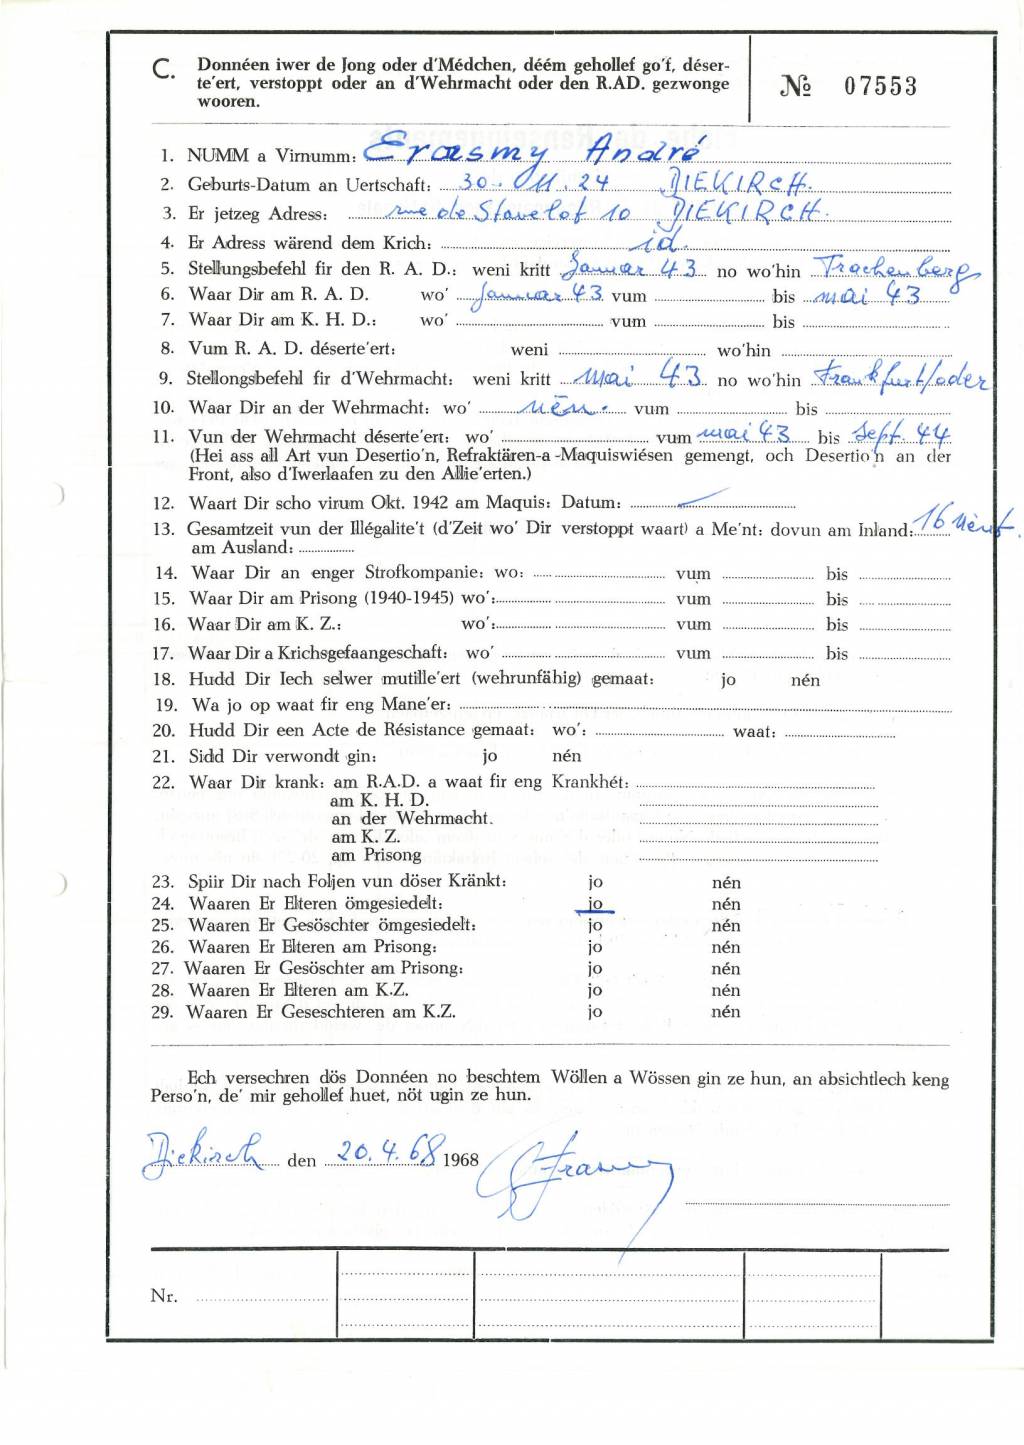 C. Donnéen iwer de Jong oder d'Médchen, déém gehollef go'f, déser-
te'ert, verstoppt oder an d'Wehrmacht oder den R.AD. gezwonge
wooren.
№ 07553
1. NUMM a Virnumm: Erasmy André
2. Geburts-Datum an Uertschaft: 30. 011. 24 DIEKIRCH.
3. Er jetzeg Adress: rue de Stavelot 10 DIEKIRCH.
4. Er Adress wärend dem Krich: id.
5. Stellungsbefehl fir den R. A. D.: weni kritt Januar 43 no wo'hin Trachenberg
6. Waar Dir am R. A. D. wo' Januar 43 vum bis mai 43
7. Waar Dir am K. H. D.: wo' vum bis
8. Vum R. A. D. déserte'ert: weni wo'hin
9. Stellongsbefehl fir d'Wehrmacht: weni kritt mai 43 no wo'hin Frankfurt/oder
10. Waar Dir an der Wehrmacht: wo' nēn. vum bis
11. Vun der Wehrmacht déserte'ert: wo' vum mai 43 bis Sept. 44
(Hei ass all Art vun Desertio'n, Refraktären-a -Maquiswiésen gemengt, och Desertio'n an der
Front, also d'Iwerlaafen zu den Allie'erten.)
12. Waart Dir scho virum Okt. 1942 am Maquis: Datum:
13. Gesamtzeit vun der Illégalite't (d'Zeit wo' Dir verstoppt waart) a Me'nt: dovun am Inland: 16 Mént.
am Ausland:
14. Waar Dir an enger Strofkompanie: wo: vum bis
15. Waar Dir am Prisong (1940-1945) wo': vum bis
16. Waar Dir am K. Z.: wo': vum bis
17. Waar Dir a Krichsgefaangeschaft: wo' vum bis
18. Hudd Dir Iech selwer mutille'ert (wehrunfähig) gemaat: jo nén
19. Wa jo op waat fir eng Mane'er:
20. Hudd Dir een Acte de Résistance gemaat: wo': waat:
21. Sidd Dir verwondt gin: jo nén
22. Waar Dir krank: am R.A.D. a waat fir eng Krankhét:
am K. H. D.
an der Wehrmacht.
am K. Z.
am Prisong
23. Spiir Dir nach Foljen vun döser Kränkt: jo nén
24. Waaren Er Elteren ömgesiedelt: jo nén
25. Waaren Er Gesöschter ömgesiedelt: jo nén
26. Waaren Er Elteren am Prisong: jo nén
27. Waaren Er Gesöschter am Prisong: jo nén
28. Waaren Er Elteren am K.Z. jo nén
29. Waaren Er Geseschteren am K.Z. jo nén
Ech versechren dös Donnéen no beschtem Wöllen a Wössen gin ze hun, an absichtlech keng
Perso'n, de' mir gehollef huet, nöt ugin ze hun.
Diekirch den 20.4.68 1968 Erasmy
Nr.